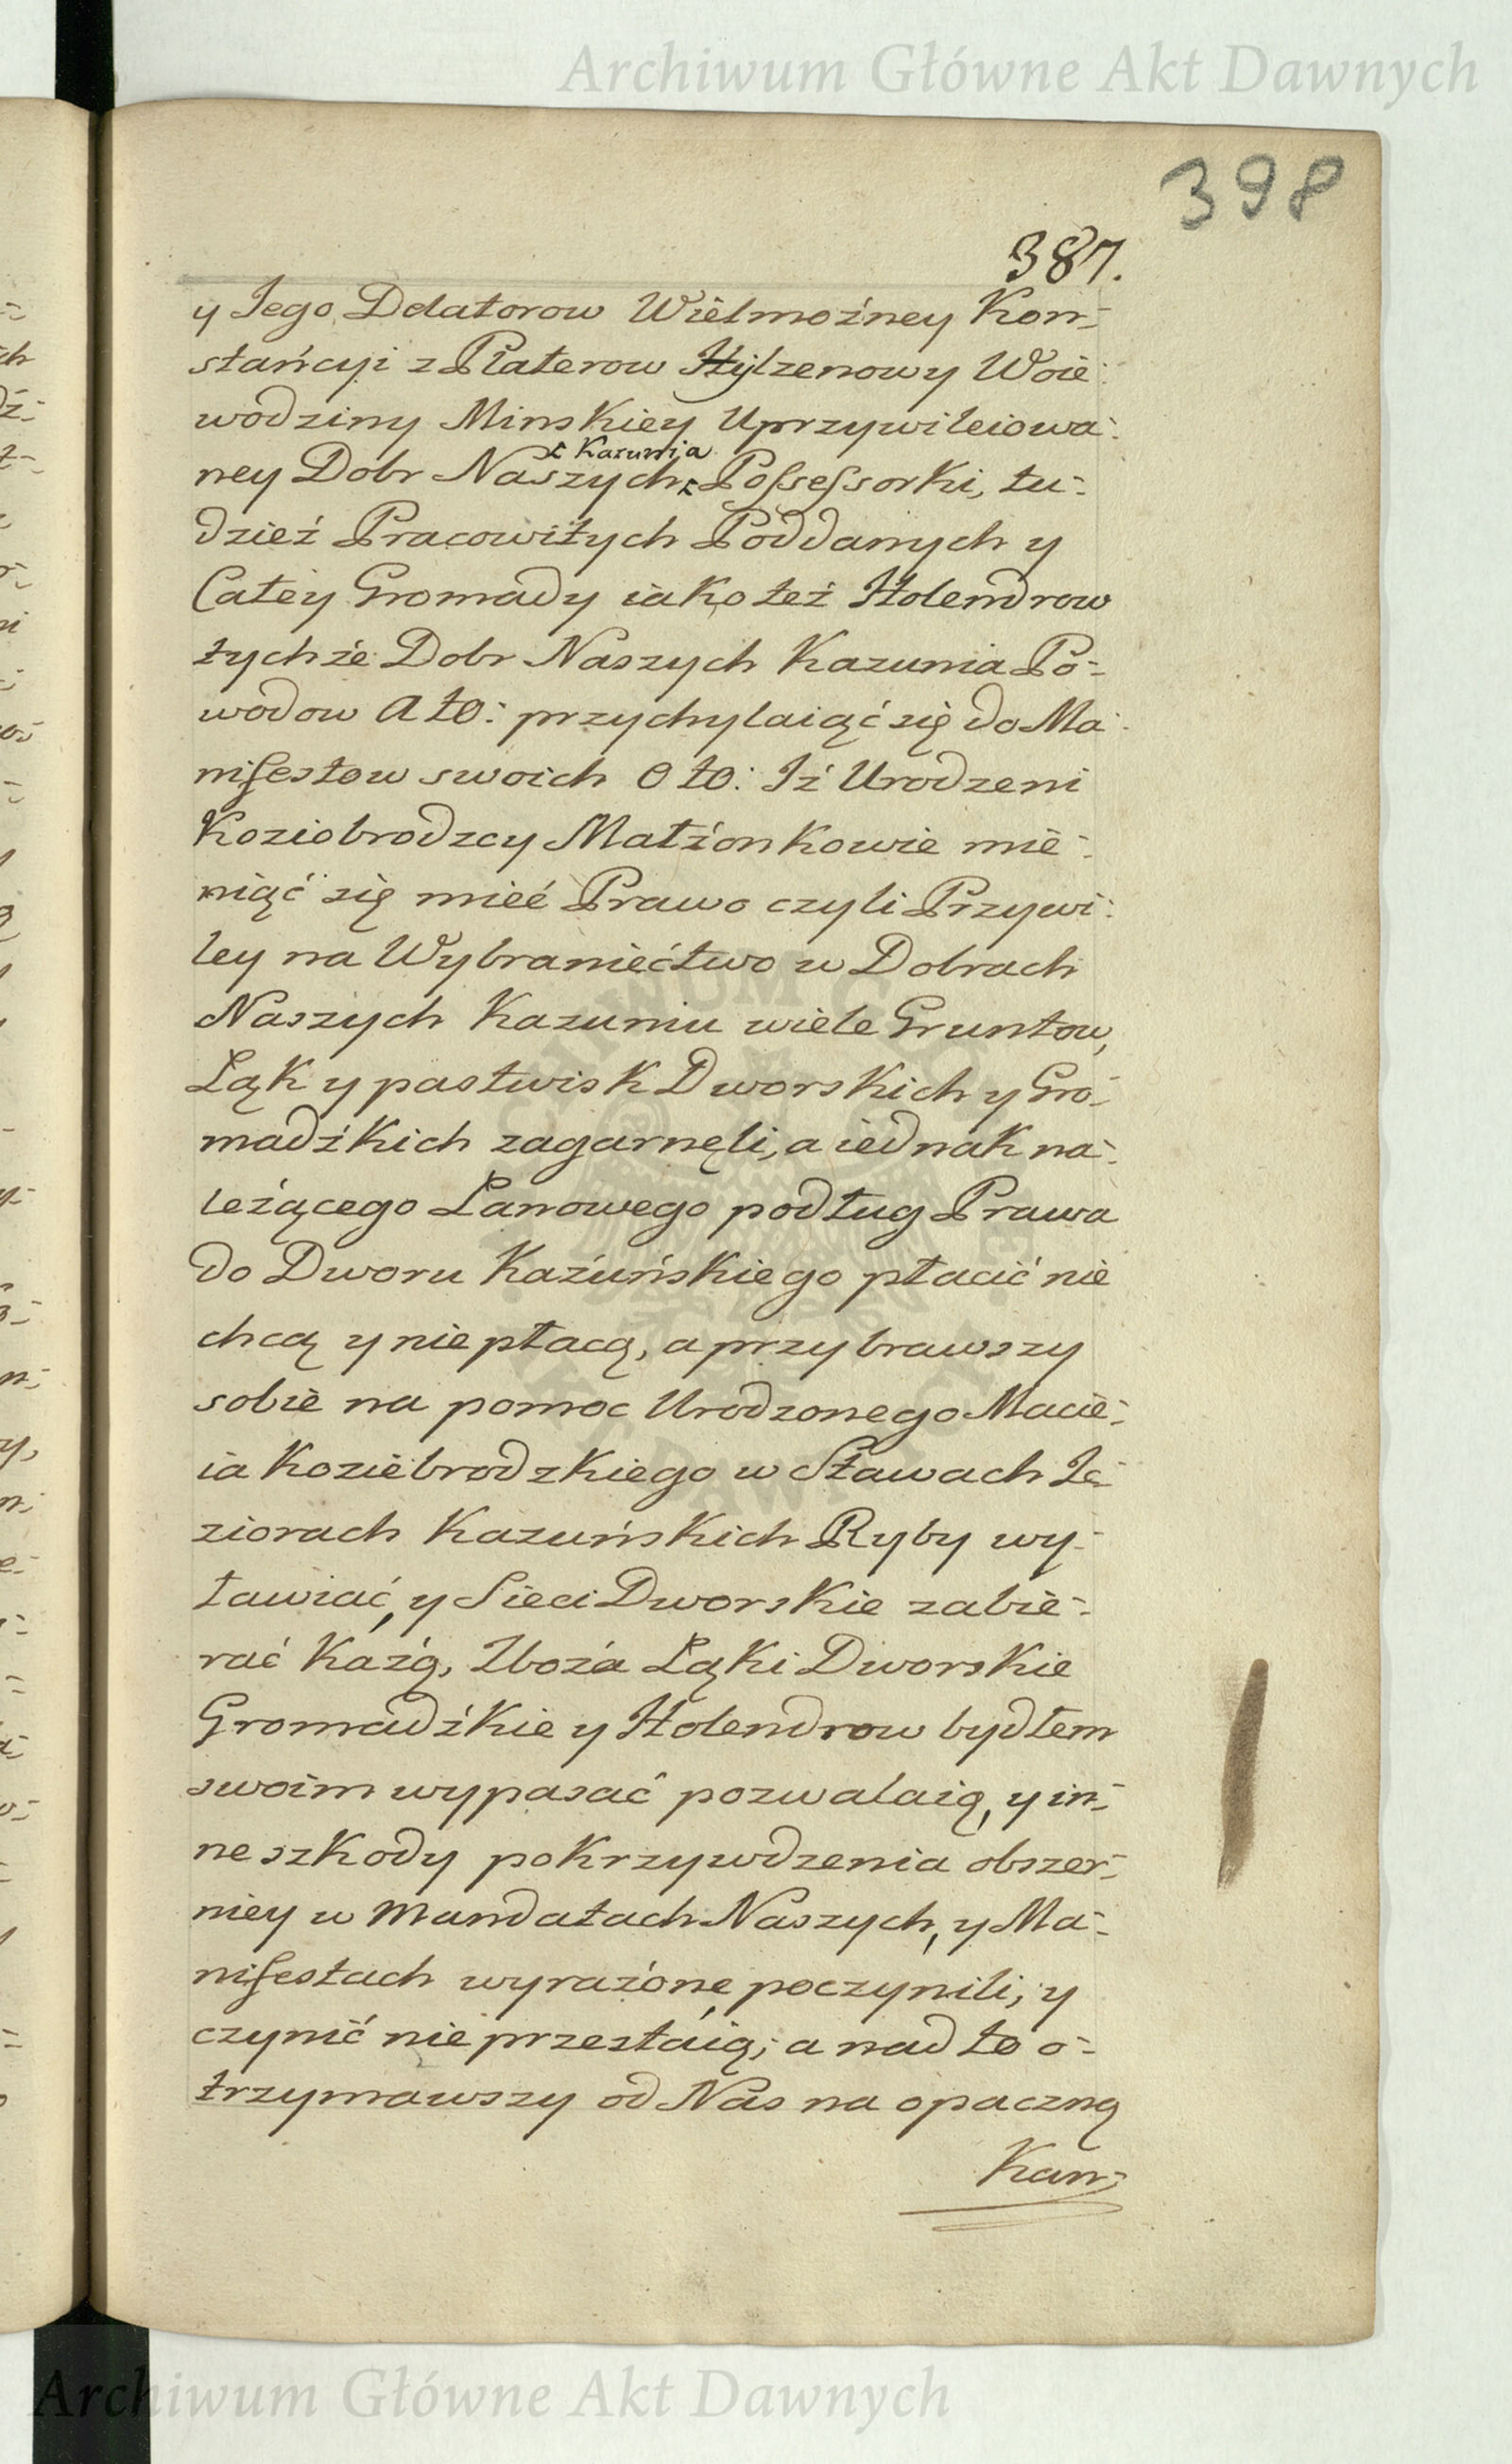 Archiwum Główne Akt Dawnych
398
387.
y Jego Delatorow Wielmożney Kon-
stańcyi z Platerow Hylzenowy Woie-
wodziny Minskiey Uprzywileiowa-
Kazunia
ney Dobr Naszych Possessorki, tu-
dzież Pracowitych Poddanych y
Całey Gromady iako też Holendrow
tychże Dobr Naszych Kazunia Po-
wodow A to: przychylaiąć się do Ma-
nifestow swoich O to: Iż Urodzeni
Koziobrodzcy Małżonkowie mie-
niąć się mieć Prawo czyli Przywi-
ley na Wybraniećtwo w Dobrach
Naszych Kazuniu wiele Gruntow,
Łąk y pastwisk Dworskich y Gro-
madźkich zagarnęli, a iednak na-
leżącego Łanowego podług Prawa
do Dworu Kaźuńskiego płacić nie
chcą y nie płacą, a przybrawszy
sobie na pomoc Urodzonego Macie-
ia Koziebrodzkiego w Stawach Je-
ziorach Kazuńskich Ryby wy-
ławiać, y Sieci Dworskie zabie-
rać każą, Zboża Łąki Dworskie
Gromadźkie y Holendrow bydłem
swoim wypasać pozwalaią, y in-
ne szkody pokrzywdzenia obszer-
niey w Mandatach Naszych, y Ma-
nifestach wyrażone poczynili, y
czynić nie przestaią; a nad to o-
trzymawszy od Nas na opaczną
Kan-
Archiwum Główne Akt Dawnych